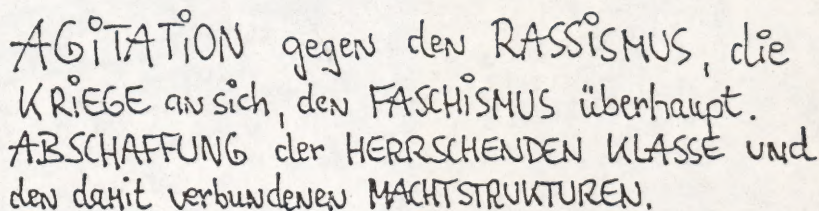 AGiTATiON gegen den RASSiSMUS, die
KRiEGE an sich, den FASCHiSMUS überhaupt.
ABSCHAFFUNG der HERRSCHENDEN KLASSE und
den damit verbundenen MACHTSTRUKTUREN.